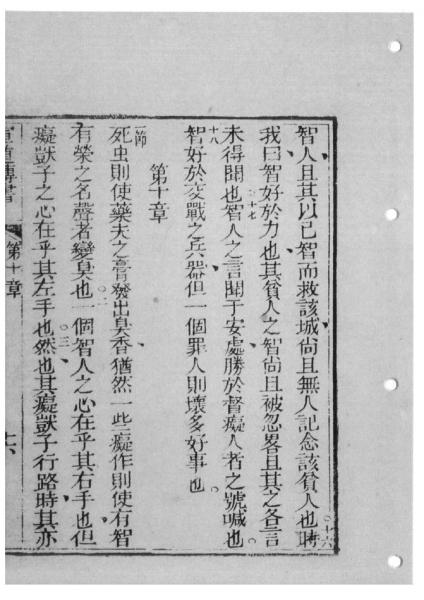 智人且其以己智而救該城尚且無人記念該貧人也時
十六
我曰智好於力也其貧人之智尚且被忽畧且其之各言
未得聞也智人之言聞于安處勝於督癡人者之號喊也
十七
智好於交戰之兵器但一個罪人則壞多好事也
十八
第十章
一節
死虫則使藥夫之膏發出臭香猶然一些癡作則使有智
有榮之名聲者變臭也一個智人之心在乎其右手也但
二
癡獃子之心在乎其左手也然也其癡獃子行路時其亦
三
傳書
第十章